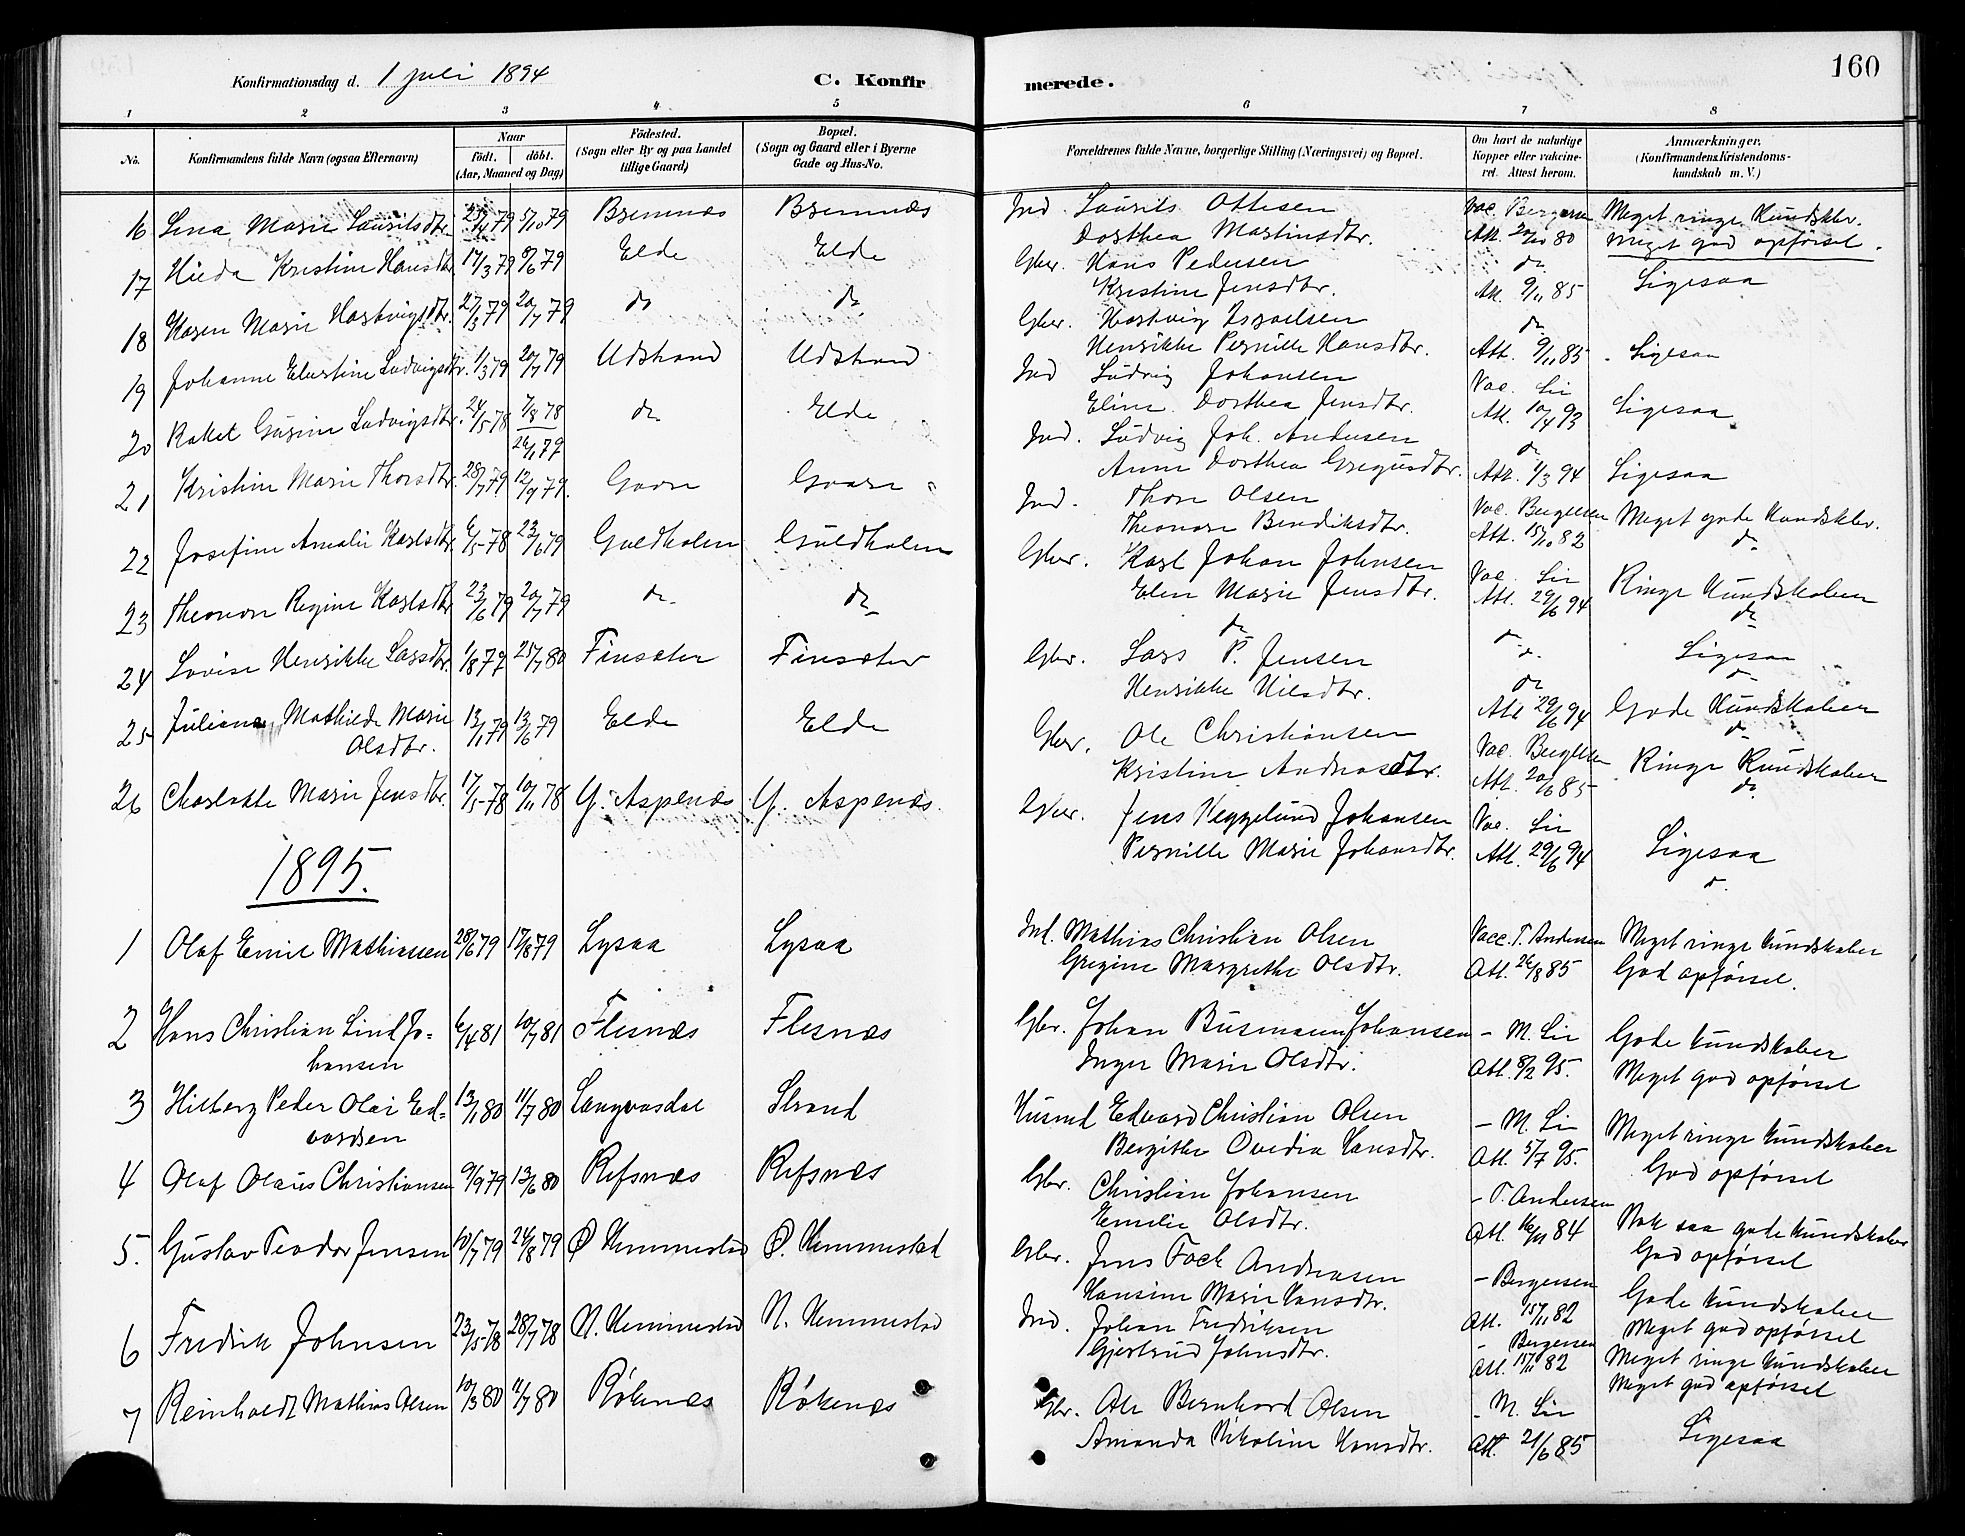 160
Konfirmationsdag d. 1 juli 1894
C. Konfirmerede.
1 2 3 4 5 6 7 8
No.
Konfirmandens fulde Navn (ogsaa Efternavn)
Naar
födt. döbt.
(Aar, Maaned og Dag)
Födested.
(Sogn eller By og paa Landet tillige Gaard)
Bopæl.
(Sogn og Gaard eller i Byerne Gade og Hus-No.
Forældrenes fulde Navne, borgerlige Stilling (Næringsvei) og Bopæl.
Om havt de naturlige Kopper eller vakcineret. Attest herom.
Anmærkninger.
(Konfirmandens Kristendomskundskab m. V.)
16 Lina Marie Lauritsdtr. 79 5/10 79 Bremnæs Bremnæs Ind Laurits Ottesen Vac. Att. 80 Meget ringe Kundskbr.
Dorthea Martinsdtr. Meget god opførsel.
17 Hilda Kristine Hansdtr 17/3 79 8/6 79 Elde Elde Gbr. Hans Pedersen do Att. 9/11 85 Ligesaa
Kristine Jensdtr.
18 Karen Marie Hartvigsdtr. 27/3 79 20/7 79 do do Gbr. Hartvig Israelsen do Att. 9/11 85 Ligesaa
Henrikke Pernille Hansdtr.
19 Johanne Elertine Ludvigsdtr. 1/3 79 20/7 79 Udstrand Udstrand Ind Ludvig Johansen Vac. Lie Att. 10/4 93 Ligesaa
Eline Dorthea Jensdtr.
20 Rakel Gusine Ludvigsdtr. 24/5 78 7/8 78 do Elde Ind. Ludvig Joh. Andersen do Att. 1/3 94 Ligesaa
26/1 79 Anne Dorthea Gregusdtr.
21 Kristine Marie Thorsdtr. 28/7 79 12/9 79. Gaare Gaare Ind. Thore Olsen Vac. Bergersen Att. 15/10 82 Meget gode Kundskbr.
Theonore Bendiksdtr. do
22 Josefine Amalie Karlsdtr. 6/5 78 23/6 79 Guldholm Guldholm Gbr. Karl Johan Johnsen Vac. Lie Att. 29/6 94 Ringe Kundskaber
Elen Marie Jensdtr. do
23 Theonore Regine Karlsdtr 23/6 79 20/7 79 do do do do Ligesaa
do
24 Lovise Henrikke Larsdtr. 1/8 79 25/7 80 Finsæter Finsæter Gbr. Lars P. Jensen do Att 29/6 94 Gode Kundskaber
Henrikke Nilsdtr. do
25 Juliane Mathilde Marie 13/1 79 13/6 79 Elde Elde Gbr. Ole Christiansen Vac. Bergersen Att. 20/6 85 Ringe Kundskaber
Olsdtr. Kristine Andreasdtr. do
26 Charlotte Marie Jensdtr. 17/5 78 10/11 78 Y. Aspenæs Y. Aspenæs. Gbr. Jens Heggelund Johansen Vac. Lie Att. 29/6 94 Ligesaa
Pernille Marie Johansdtr. do
1895.
1 Olaf Emil Mathiassen 28/6 79 17/8 79 Lysaa Lysaa Ind. Mathias Christian Olsen Vacc. T. Andersen Meget ringe kundskaber
Gregine Margrethe Olsdtr. Att. 26/8 85 God opførsel.
2 Hans Christian Lind Jo- 6/4 81 10/7 81 Flesnæs Flesnæs Gbr. Johan Busmann Johansen – M. Lie Gode kundskaber
hansen Inger Marie Olsdtr. Att. 8/2 95. Meget god opførsel
3 Hilberg Peder Olai Ed- 13/1 80 11/7 80 Langvasdal Strand Husmd Edvard Christian Olsen – M. Lie Meget ringe kundskaber
vardsen Bergithe Ovedia Hansdtr. Att. 5/7 95. God opførsel
4 Olaf Olaus Christiansen 9/9 79 13/6 80 Refsnæs Refsnæs Gbr. Christian Johansen – T. Andersen Nok saa gode kundskaber
Emilie Olsdtr. Att. 16/11 84 God opførsel
5. Gustav Teodor Jensen 10/7 79 24/8 79 Ø Hemmestad Ø. Hemmestad Gbr. Jens Fock Andreasen – Bergersen Gode kundskaber
Hansine Marie Hansdtr. Att. 15/11 82 Meget god opførsel
6 Fredrik Johnsen 23/5 78 28/7 78 N. Hemmestad N. Hemmestad Ind. Johan Fredriksen – Bergersen Meget ringe kundskaber
Gjertrud Johnsdtr. Att. 15/11 82 Meget god opførsel
7 Reinholdt Mathias Olsen 10/3 80 11/7 80 Røkenæs Røkenæs Gbr. Ole Bernhard Olsen – M. Lie Ligesaa
Amanda Nikoline Hansdtr. Att. 21/6 85